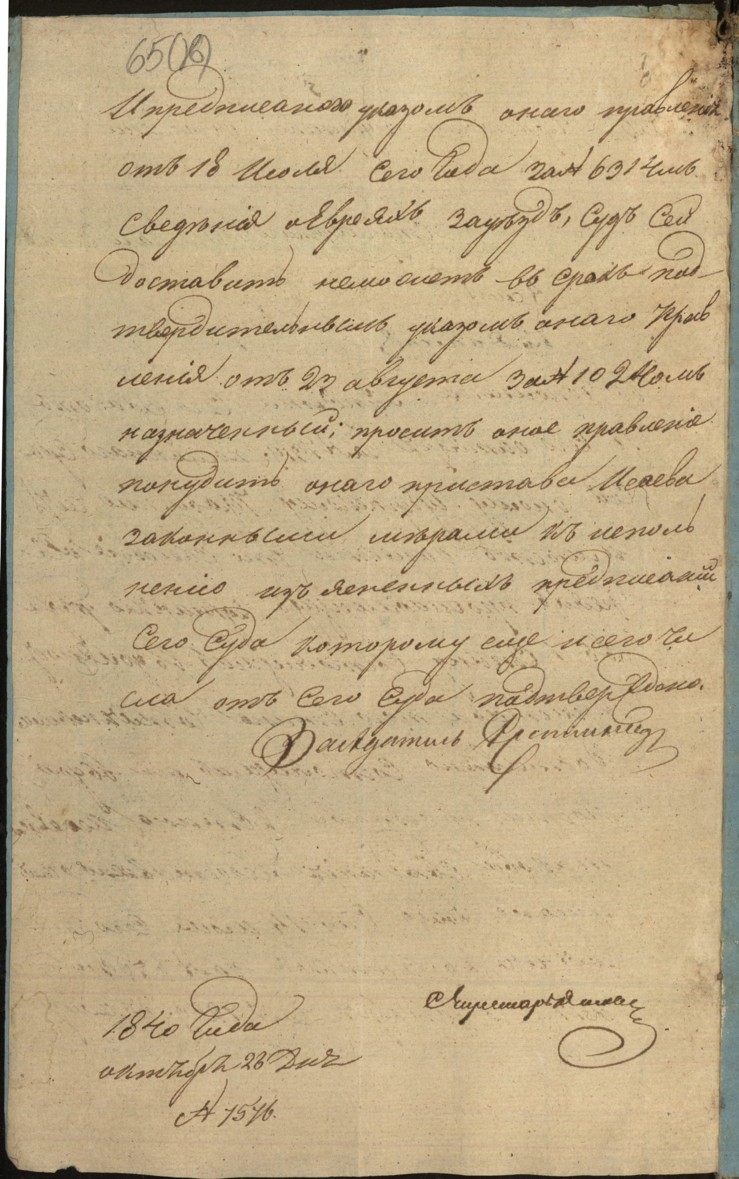 65(16)
И предписаного указомъ онаго правленія
отъ 18 Июля сего Года за № 6314мъ
сведѣнія о Евреяхъ за уѣздъ, Судъ Сей
доставить неможетъ въ срокъ под-
твердительнымъ указомъ онаго Прав
ленія отъ 23 августа за № 10240мъ
назначенный; проситъ оное правленіе
понудить онаго пристава Исаева
законными мѣрами къ исполь
ненію изъясненныхъ предписаній
Сего Суда которому еще и сего чи
сла отъ Сего Суда подтверждено.
Заседатель
Секретарь
1840 Года
октября 23 Дня
№ 1576.